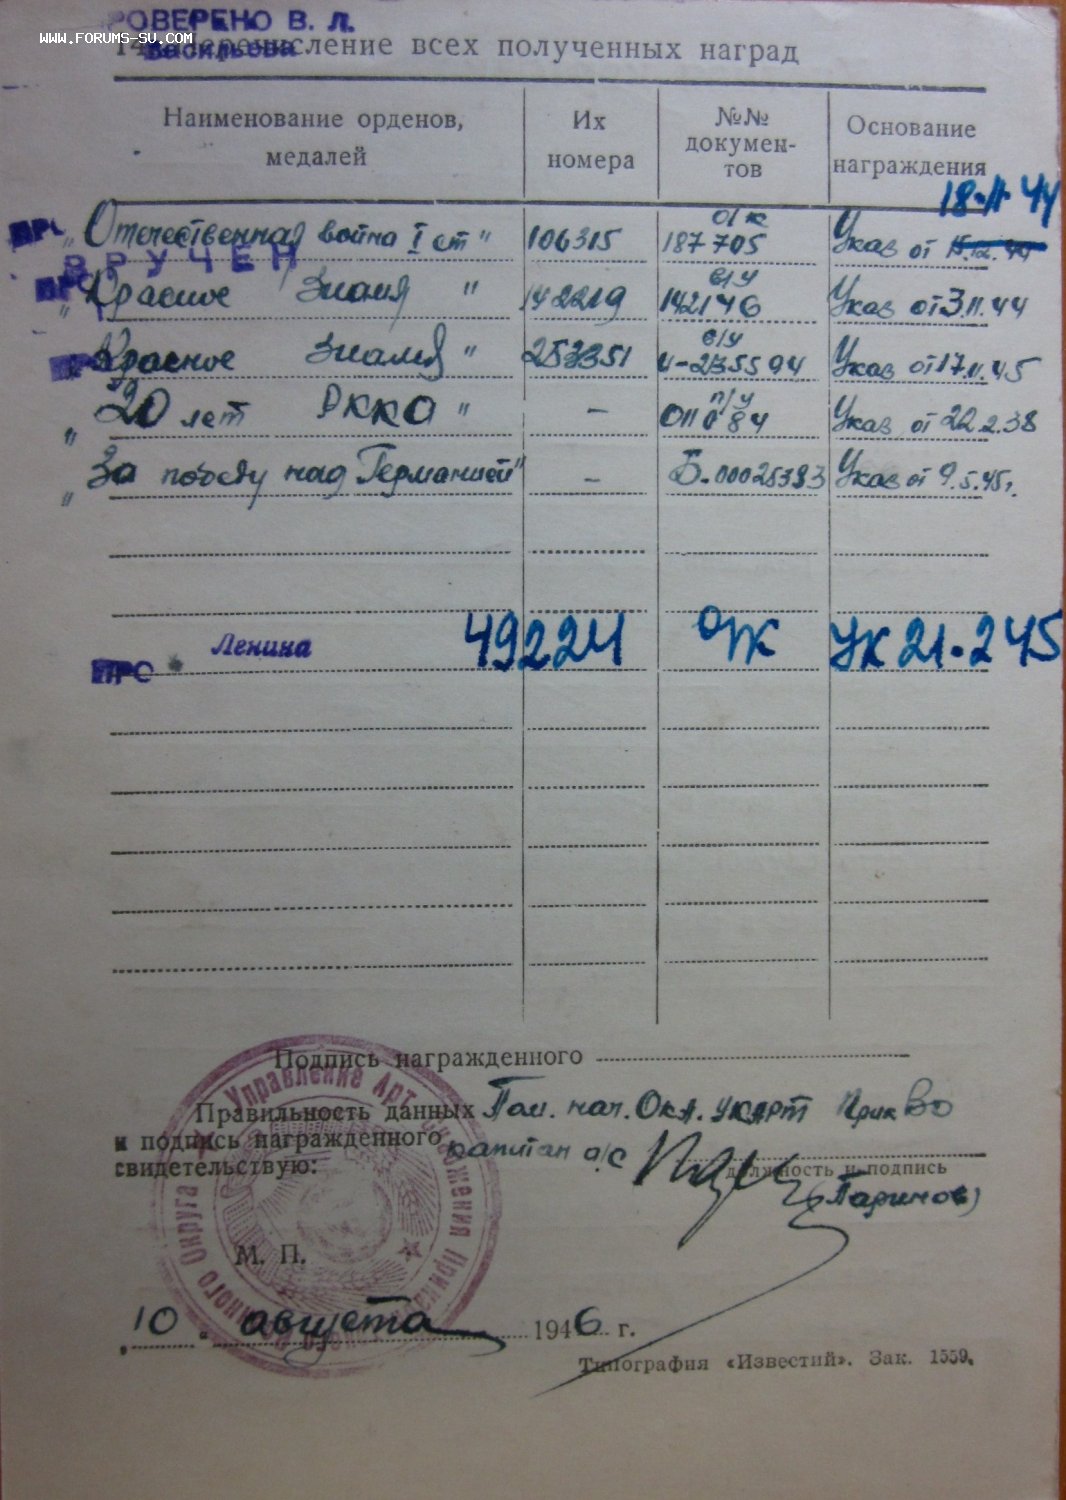 РОВЕРЕНО В. Л.
Васильева
WWW.FORUMS-SU.COM
14. Перечисление всех полученных наград
Наименование орденов, медалей
Их номера
№№ докумен-тов
Основание награждения
18.11.44
ПРО „Отечественная война I ст" 106315 о/к 187705 Указ от 15.12.44
ВРУЧЕН
ПРО „Красное Знамя" 142219 в/у 142176 Указ от 3.11.44
ПРО „Красное Знамя" 253351 в/у Указ от 17.11.45
„20 лет РККА" – п/у 011084 Указ от 22.2.38
„За победу над Германией" – Б.00025383 Указ от 9.5.45г.
ПРО Ленина 49224 О/К УК 21.2 45
Подпись награжденного
Правильность данных Пом. нач. УКАРТ ПрикВО
и подпись награжденного капитан а/с
свидетельствую:
должность и подпись
(Паримов)
Управление Арт. Снабжения Прикарпатского Военного Округа
М. П.
„10" августа 1946 г.
Типография «Известий». Зак. 1559.